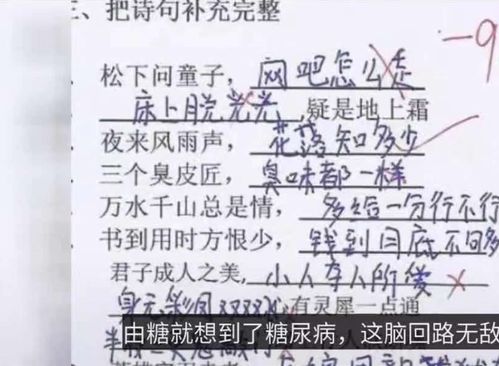 三、把诗句补充完整
-9
松下问童子，网吧怎么走
床上脱光光，疑是地上霜
夜来风雨声，花落知多少
三个臭皮匠，臭味都一样
万水千山总是情，多给一分行不行
书到用时方恨少，钱到月底不够
君子成人之美，小人夺人所爱
心有灵犀一点通
由糖就想到了糖尿病，这脑回路无敌